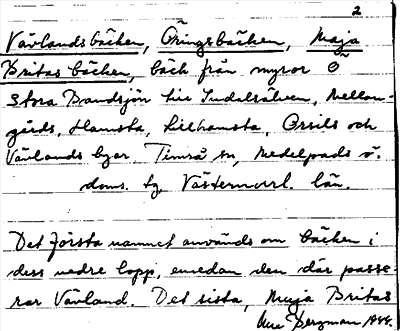 2
Vävlandsbäcken, Öringsbäcken, Maja
Britas bäcken, bäck från myror O
Stora Bandsjön till Indalsälven, Mellan-
gårds, Hamsta, Lillhamsta, Orsils och
Vävlands byar. Timrå sn, Medelpads
doms. tg Västernorrl. län.
Det första namnet används om bäcken i
dess nedre lopp, emedan den där passe-
rar Vävland. Det sista, Maja Britas
Bergman